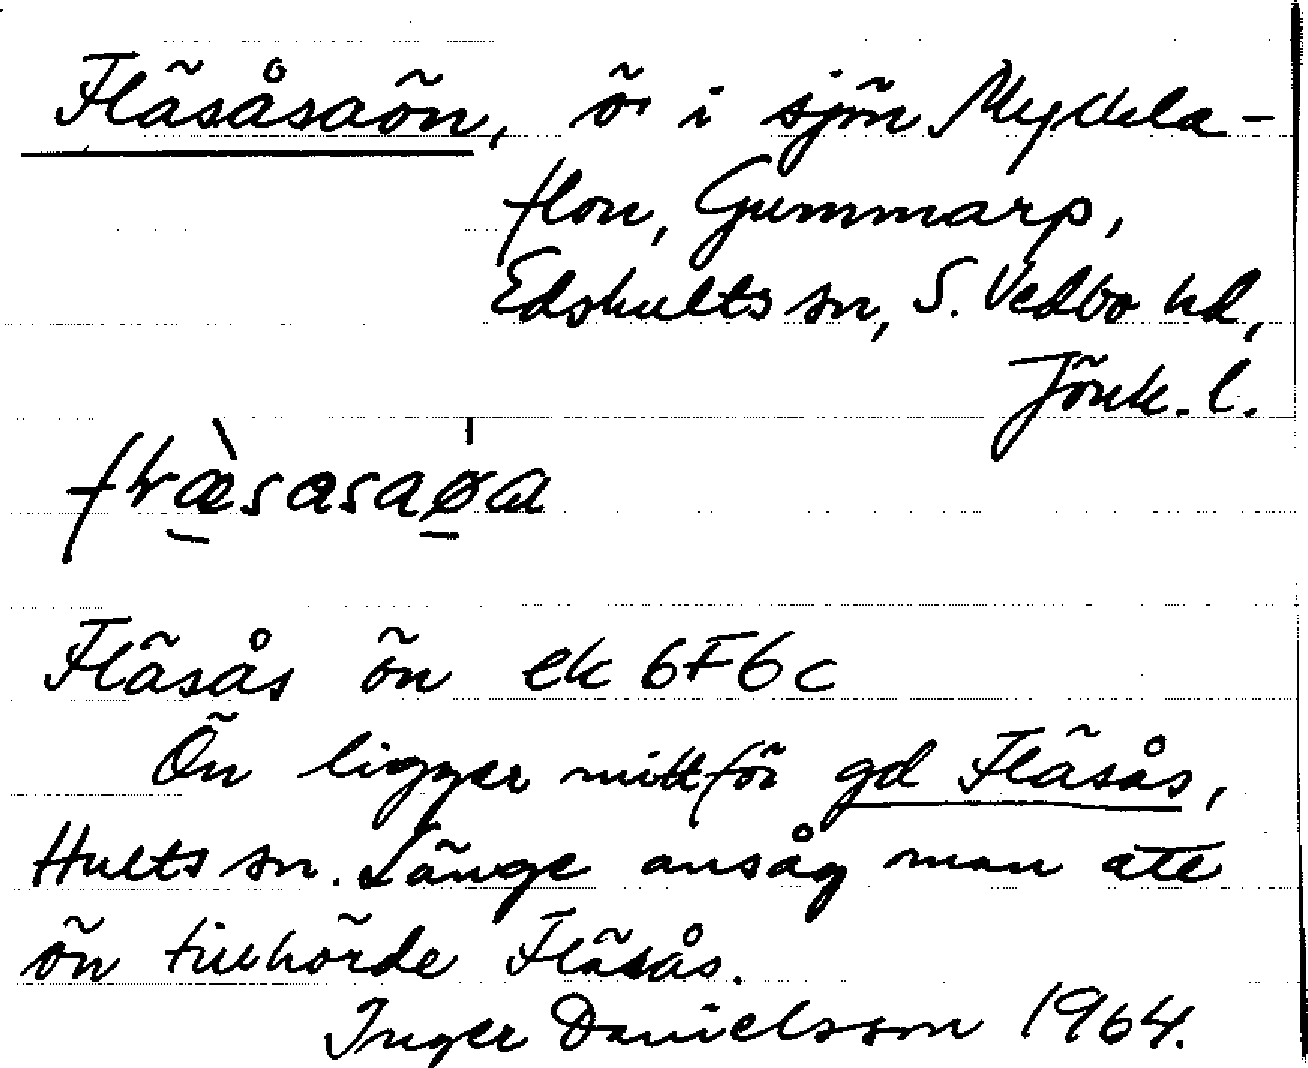 Fläsåsaön, ö i sjön Myckla-
flon, Gummarp,
Edshults sn, S. Vedbo hd,
Jönk. l.
Fläsås ön ek 6F6c
Ön ligger mittför gd Fläsås,
Hults sn. Länge ansåg man att
ön tillhörde Fläsås.
Inger Danielsson 1964.